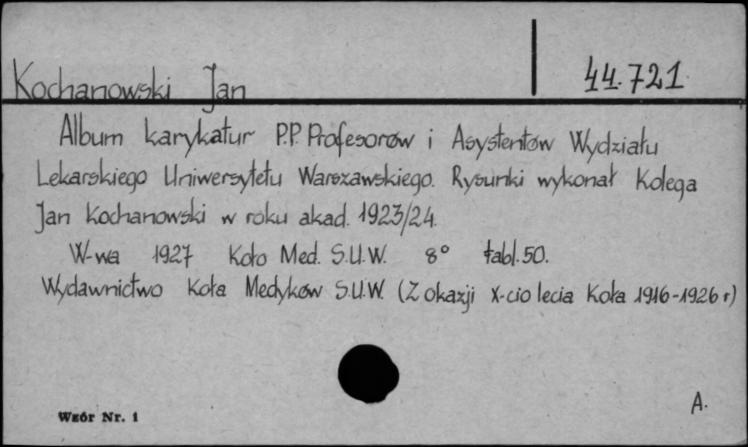 Kochanowski Jan 44.721
Album karykatur P.P. Profesorów i Asystentów Wydziału
Lekarskiego Uniwersytetu Warszawskiego. Rysunki wykonał Kolega
Jan Kochanowski w roku akad. 1923/24.
W-wa 1927 Koło Med. S.U.W. 8° tabl. 50.
Wydawnictwo Koła Medyków S.U.W. (Z okazji X-cio lecia Koła 1916-1926 r)
A.
Wzór Nr. 1